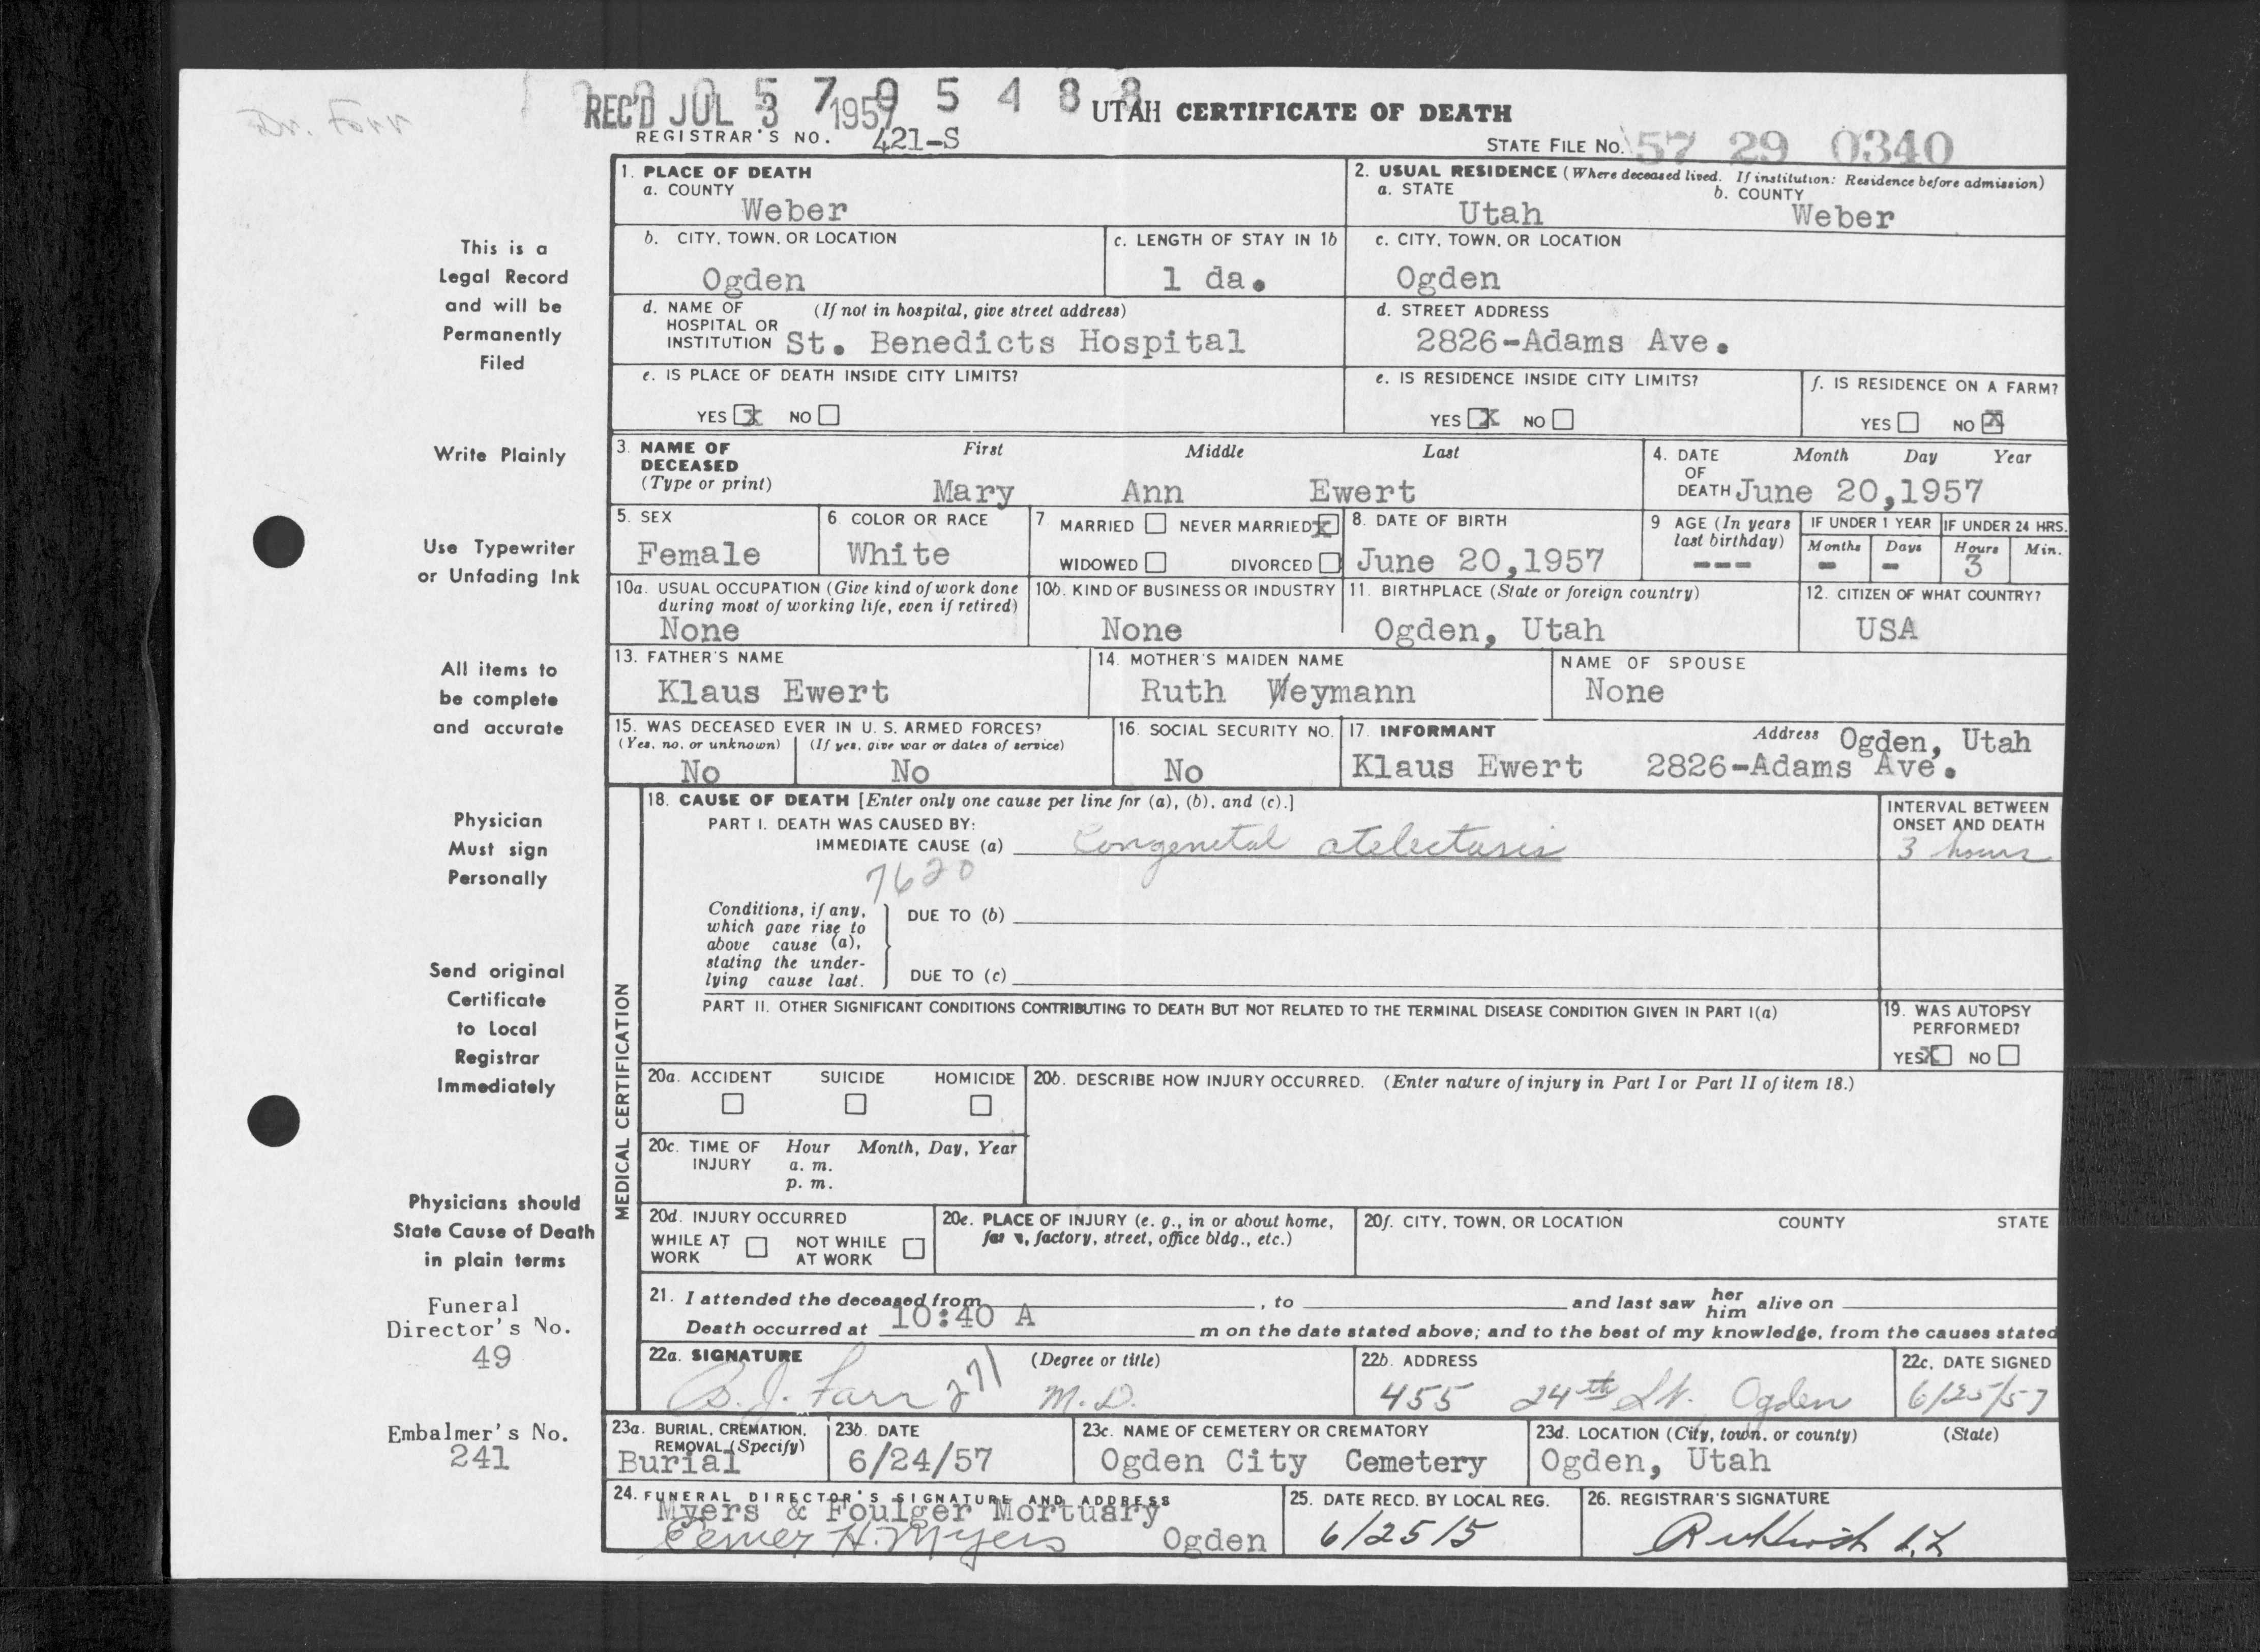 Dr. Farr
REC'D JUL 3 1957
5 7 9 5 4 8 8
UTAH CERTIFICATE OF DEATH
REGISTRAR'S NO. 421-S
STATE FILE No. 57 29 0340
This is a
Legal Record
and will be
Permanently
Filed
Write Plainly
Use Typewriter
or Unfading Ink
All items to
be complete
and accurate
Physician
Must sign
Personally
Send original
Certificate
to Local
Registrar
Immediately
Physicians should
State Cause of Death
in plain terms
Funeral
Director's No.
49
Embalmer's No.
241
1. PLACE OF DEATH
a. COUNTY
Weber
2. USUAL RESIDENCE (Where deceased lived. If institution: Residence before admission)
a. STATE b. COUNTY
Utah Weber
b. CITY, TOWN, OR LOCATION
Ogden
c. LENGTH OF STAY IN 1b
1 da.
c. CITY, TOWN, OR LOCATION
Ogden
d. NAME OF (If not in hospital, give street address)
HOSPITAL OR
INSTITUTION St. Benedicts Hospital
d. STREET ADDRESS
2826-Adams Ave.
e. IS PLACE OF DEATH INSIDE CITY LIMITS?
YES X NO
e. IS RESIDENCE INSIDE CITY LIMITS?
YES X NO
f. IS RESIDENCE ON A FARM?
YES NO X
3. NAME OF First Middle Last
DECEASED
(Type or print) Mary Ann Ewert
4. DATE Month Day Year
OF
DEATH June 20,1957
5. SEX
Female
6. COLOR OR RACE
White
7. MARRIED NEVER MARRIED X
WIDOWED DIVORCED
8. DATE OF BIRTH
June 20,1957
9 AGE (In years
last birthday)
---
IF UNDER 1 YEAR
Months Days
- -
IF UNDER 24 HRS.
Hours Min.
3
10a. USUAL OCCUPATION (Give kind of work done
during most of working life, even if retired)
None
10b. KIND OF BUSINESS OR INDUSTRY
None
11. BIRTHPLACE (State or foreign country)
Ogden, Utah
12. CITIZEN OF WHAT COUNTRY?
USA
13. FATHER'S NAME
Klaus Ewert
14. MOTHER'S MAIDEN NAME
Ruth Weymann
NAME OF SPOUSE
None
15. WAS DECEASED EVER IN U. S. ARMED FORCES?
(Yes, no, or unknown) (If yes, give war or dates of service)
No No
16. SOCIAL SECURITY NO.
No
17. INFORMANT Address Ogden, Utah
Klaus Ewert 2826-Adams Ave.
MEDICAL CERTIFICATION
18. CAUSE OF DEATH [Enter only one cause per line for (a), (b), and (c).]
PART I. DEATH WAS CAUSED BY:
IMMEDIATE CAUSE (a) Congenital atelectasis
7620
INTERVAL BETWEEN
ONSET AND DEATH
3 hours
Conditions, if any,
which gave rise to
above cause (a),
stating the under-
lying cause last.
DUE TO (b)
DUE TO (c)
PART II. OTHER SIGNIFICANT CONDITIONS CONTRIBUTING TO DEATH BUT NOT RELATED TO THE TERMINAL DISEASE CONDITION GIVEN IN PART I(a)
19. WAS AUTOPSY
PERFORMED?
YES X NO
20a. ACCIDENT SUICIDE HOMICIDE
20b. DESCRIBE HOW INJURY OCCURRED. (Enter nature of injury in Part I or Part II of item 18.)
20c. TIME OF Hour Month, Day, Year
INJURY a. m.
p. m.
20d. INJURY OCCURRED
WHILE AT NOT WHILE
WORK AT WORK
20e. PLACE OF INJURY (e. g., in or about home,
farm, factory, street, office bldg., etc.)
20f. CITY, TOWN, OR LOCATION COUNTY STATE
21. I attended the deceased from , to and last saw her him alive on
Death occurred at 10:40 A m on the date stated above; and to the best of my knowledge, from the causes stated
22a. SIGNATURE (Degree or title)
B. J. Farr 271 M.D.
22b. ADDRESS
455 24th St. Ogden
22c. DATE SIGNED
6/25/57
23a. BURIAL, CREMATION,
REMOVAL (Specify)
Burial
23b. DATE
6/24/57
23c. NAME OF CEMETERY OR CREMATORY
Ogden City Cemetery
23d. LOCATION (City, town, or county) (State)
Ogden, Utah
24. FUNERAL DIRECTOR'S SIGNATURE AND ADDRESS
Myers & Foulger Mortuary
Elmer H. Myers Ogden
25. DATE RECD. BY LOCAL REG.
6/25/5
26. REGISTRAR'S SIGNATURE